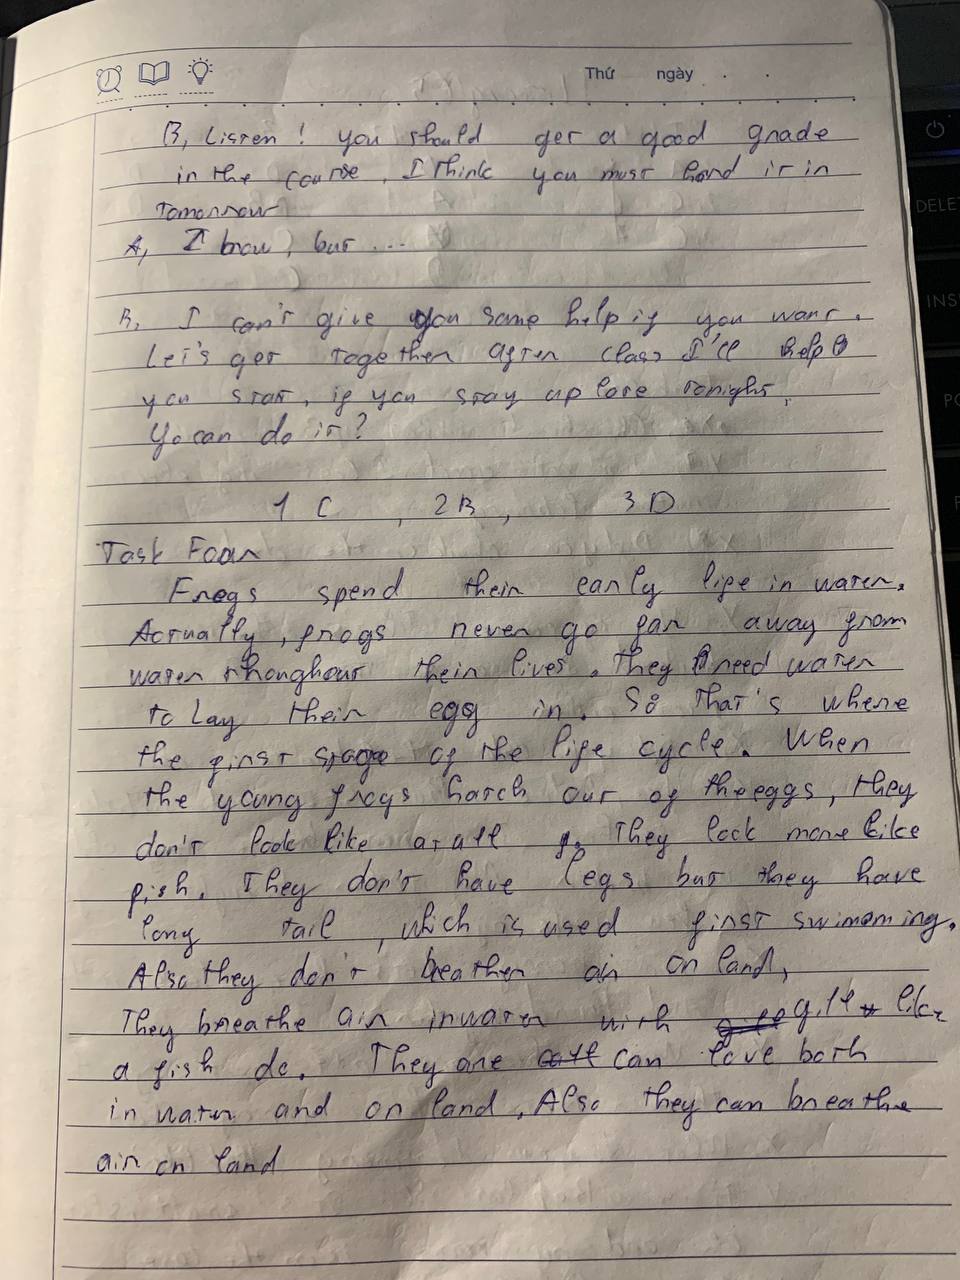 Thứ ngày . .
B, Listen! you should get a good grade
in the course, I think you must hand it in
Tomorrow
A, I know, but ...
B, I can't give you some help if you want.
Let's get together after class I'll help
you start, if you stay up late tonight,
Yo can do it?
1 C , 2 B , 3 D
Task Foar
Frogs spend their early life in water.
Actually, frogs never go far away from
water throughout their lives. They need water
to Lay their egg in. So that's where
the first stage of the life cycle. When
the young frogs hatch out of the eggs, they
don't look like at all. They look more like
fish. They don't have legs but they have
long tail, which is used first swimming.
Also they don't breather air on land,
They breathe air in water with gill like
a fish do. They are can live both
in water and on land, Also they can breathe
air on land